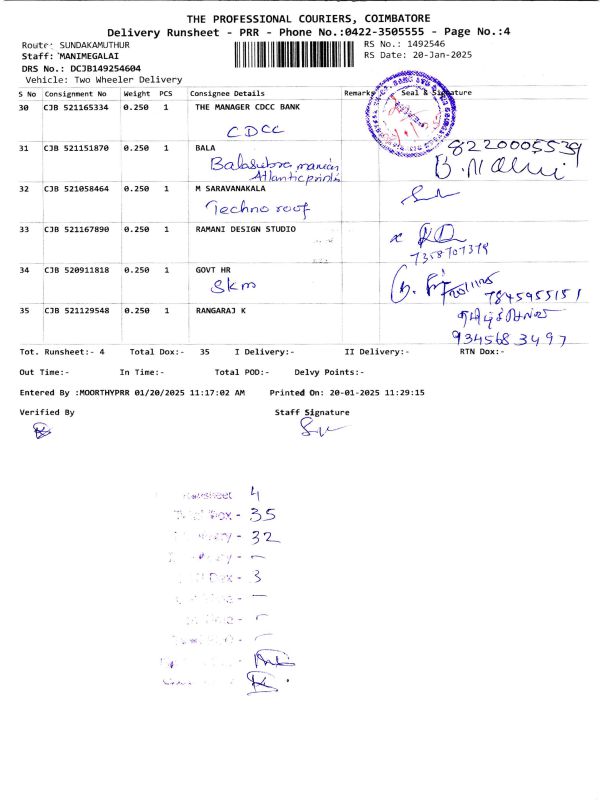 THE PROFESSIONAL COURIERS, COIMBATORE
Delivery Runsheet - PRR - Phone No.:0422-3505555 - Page No.:4
Route: SUNDAKAMUTHUR
RS No.: 1492546
Staff: MANIMEGALAI
RS Date: 20-Jan-2025
DRS No.: DCJB149254604
Vehicle: Two Wheeler Delivery
S No Consignment No Weight PCS Consignee Details Remarks Seal & Signature
30 CJB 521165334 0.250 1 THE MANAGER CDCC BANK
CDCC
31 CJB 521151870 0.250 1 BALA 8220005539
Balasubramanian
Atlantic prints
32 CJB 521058464 0.250 1 M SARAVANAKALA
Techno roof
33 CJB 521167890 0.250 1 RAMANI DESIGN STUDIO
7358707379
34 CJB 520911818 0.250 1 GOVT HR
SKm 7845955151
35 CJB 521129548 0.250 1 RANGARAJ K
9345683497
Tot. Runsheet:- 4 Total Dox:- 35 I Delivery:- II Delivery:- RTN Dox:-
Out Time:- In Time:- Total POD:- Delvy Points:-
Entered By :MOORTHYPRR 01/20/2025 11:17:02 AM Printed On: 20-01-2025 11:29:15
Verified By Staff Signature
Runsheet 4
Dox - 35
32
Dox - 3